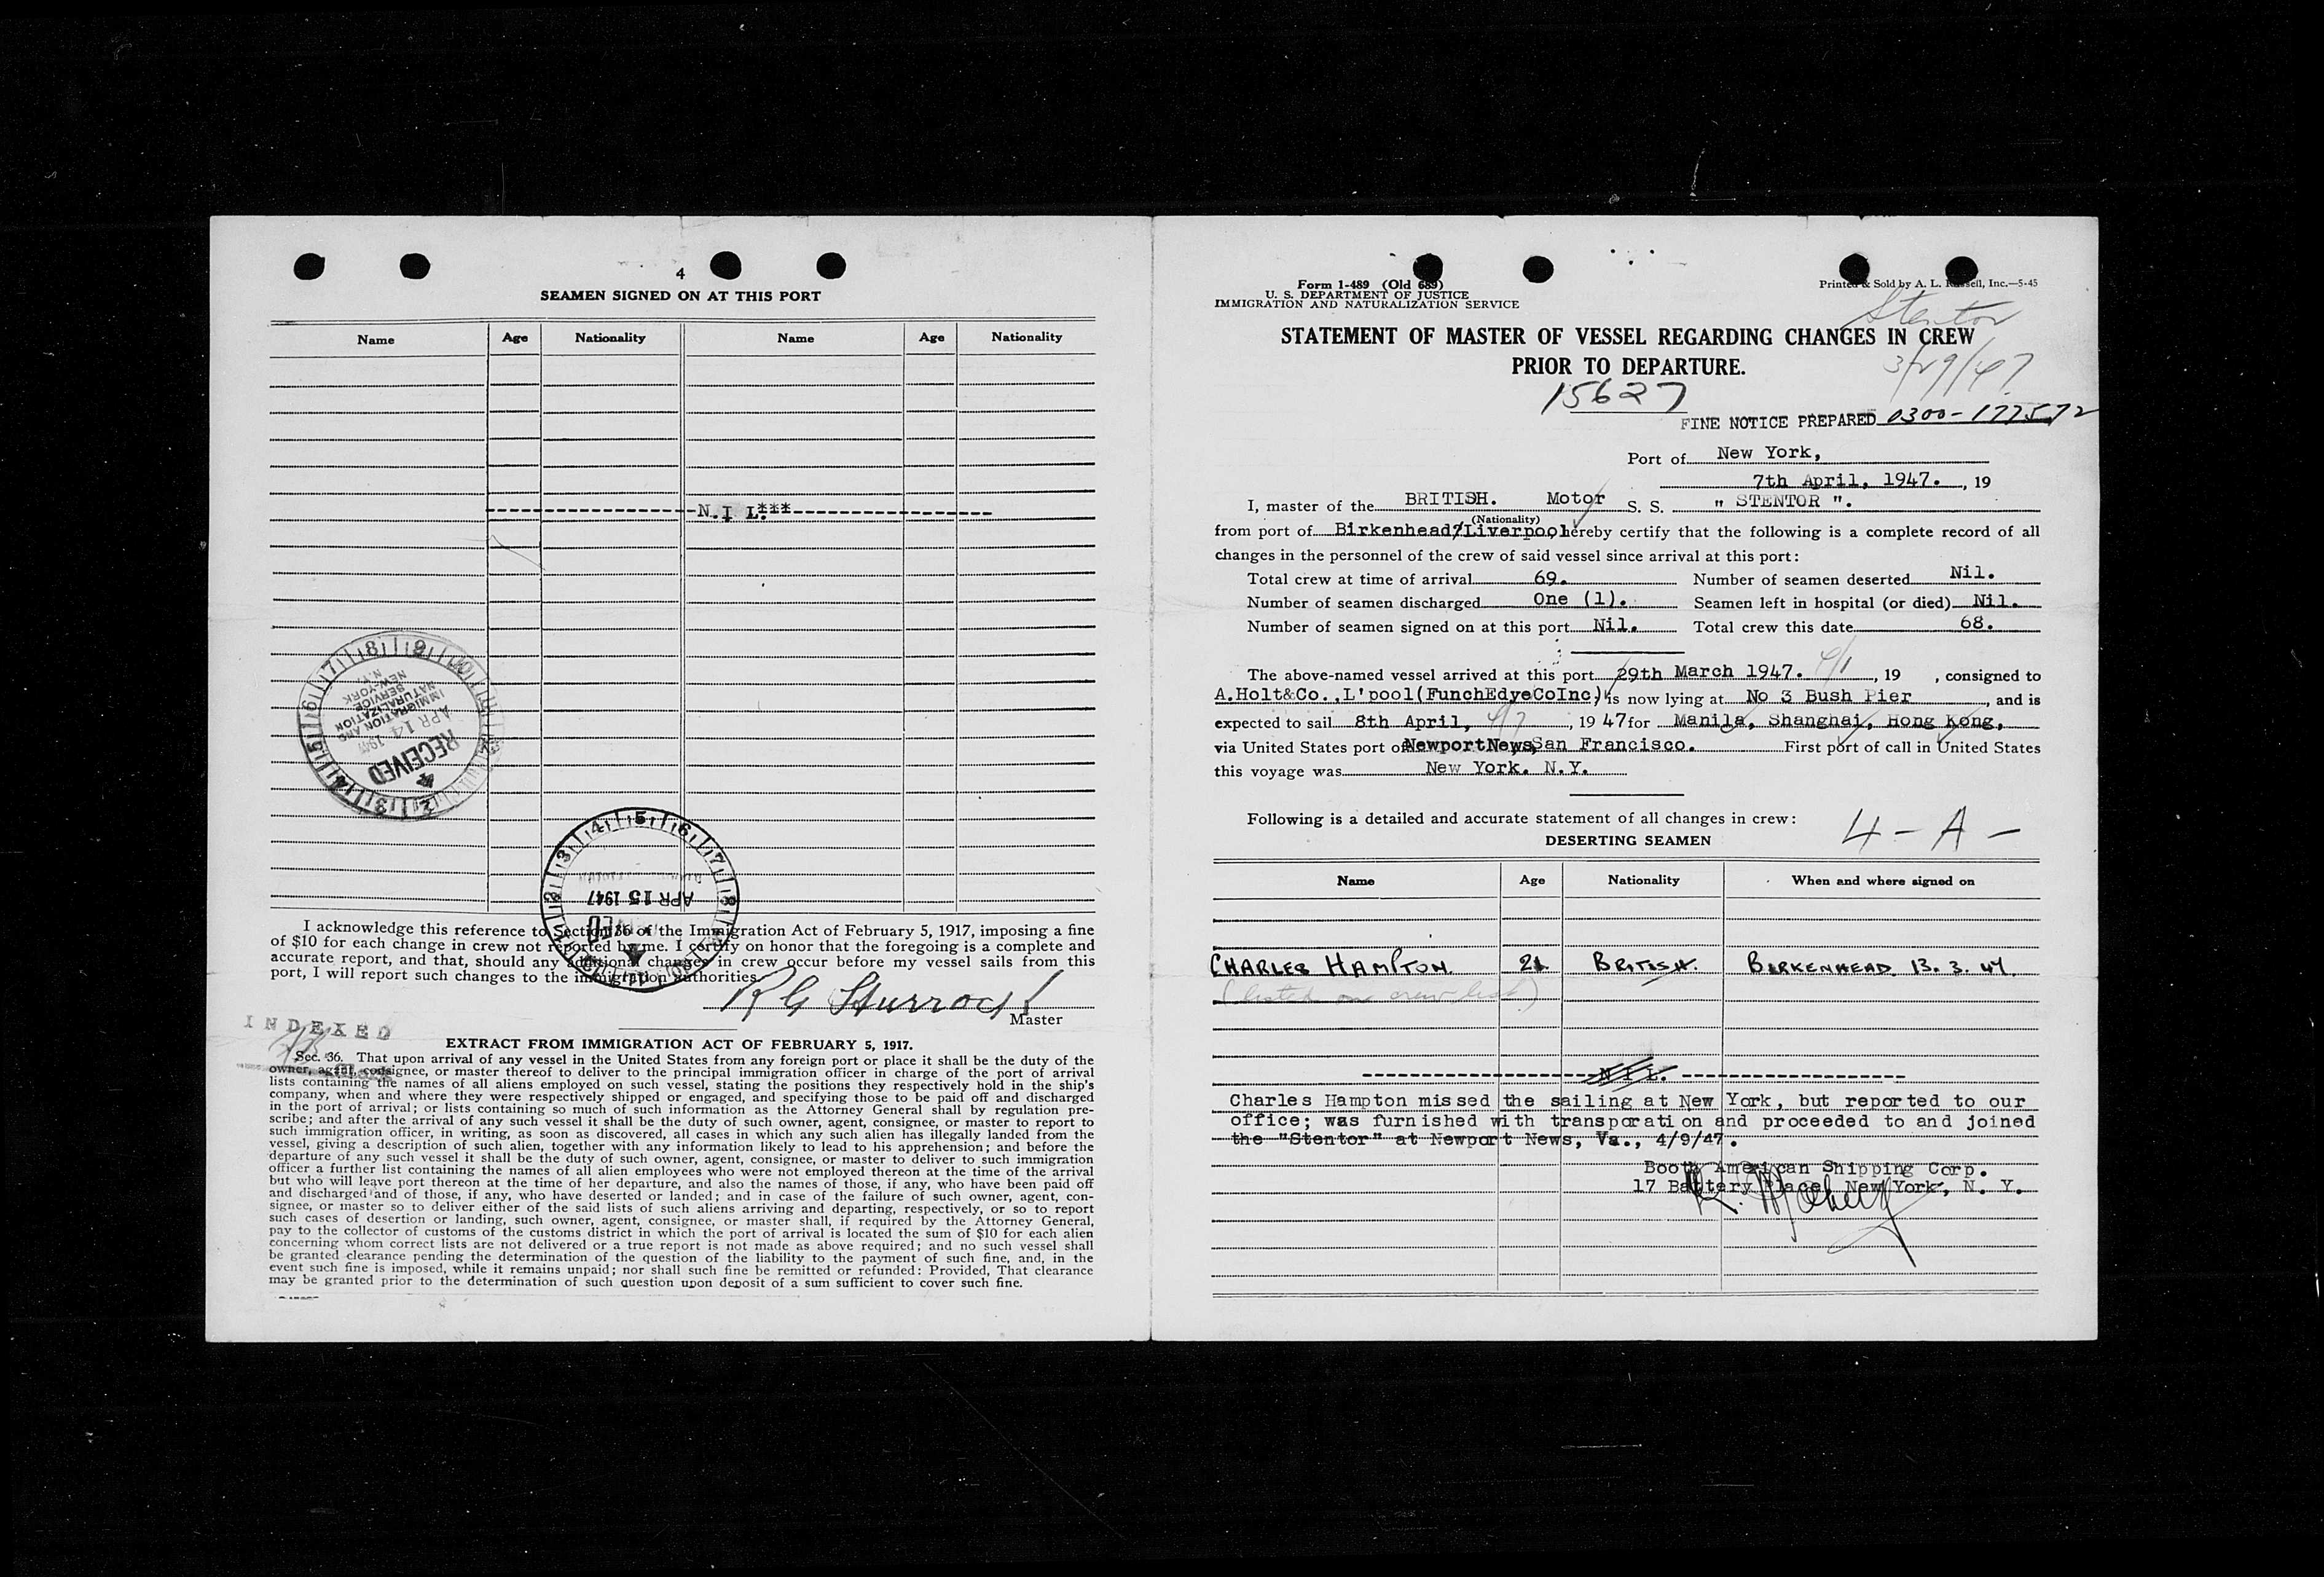 4
SEAMEN SIGNED ON AT THIS PORT
Name Age Nationality Name Age Nationality
N.I L.***
RECEIVED
APR 14 1947
IMMIGRATION AND
NATURALIZATION
SERVICE
NEW YORK
N.Y.
APR 15 1947
I acknowledge this reference to Section 36 of the Immigration Act of February 5, 1917, imposing a fine
of $10 for each change in crew not reported by me. I certify on honor that the foregoing is a complete and
accurate report, and that, should any additional changes in crew occur before my vessel sails from this
port, I will report such changes to the immigration authorities.
R G Sturrock
Master
INDEXED
EXTRACT FROM IMMIGRATION ACT OF FEBRUARY 5, 1917.
Sec. 36. That upon arrival of any vessel in the United States from any foreign port or place it shall be the duty of the
owner, agent, consignee, or master thereof to deliver to the principal immigration officer in charge of the port of arrival
lists containing the names of all aliens employed on such vessel, stating the positions they respectively hold in the ship's
company, when and where they were respectively shipped or engaged, and specifying those to be paid off and discharged
in the port of arrival; or lists containing so much of such information as the Attorney General shall by regulation pre-
scribe; and after the arrival of any such vessel it shall be the duty of such owner, agent, consignee, or master to report to
such immigration officer, in writing, as soon as discovered, all cases in which any such alien has illegally landed from the
vessel, giving a description of such alien, together with any information likely to lead to his apprehension; and before the
departure of any such vessel it shall be the duty of such owner, agent, consignee, or master to deliver to such immigration
officer a further list containing the names of all alien employees who were not employed thereon at the time of the arrival
but who will leave port thereon at the time of her departure, and also the names of those, if any, who have been paid off
and discharged and of those, if any, who have deserted or landed; and in case of the failure of such owner, agent, con-
signee, or master so to deliver either of the said lists of such aliens arriving and departing, respectively, or so to report
such cases of desertion or landing, such owner, agent, consignee, or master shall, if required by the Attorney General,
pay to the collector of customs of the customs district in which the port of arrival is located the sum of $10 for each alien
concerning whom correct lists are not delivered or a true report is not made as above required; and no such vessel shall
be granted clearance pending the determination of the question of the liability to the payment of such fine, and, in the
event such fine is imposed, while it remains unpaid; nor shall such fine be remitted or refunded: Provided, That clearance
may be granted prior to the determination of such question upon deposit of a sum sufficient to cover such fine.
Form 1-489 (Old 689)
U. S. DEPARTMENT OF JUSTICE
IMMIGRATION AND NATURALIZATION SERVICE
Printed & Sold by A. L. Russell, Inc.—5-45
Stentor
STATEMENT OF MASTER OF VESSEL REGARDING CHANGES IN CREW
PRIOR TO DEPARTURE.
3/29/47
15627
FINE NOTICE PREPARED 0300-177572
Port of New York,
7th April, 1947. , 19
I, master of the BRITISH. Motor S. S. " STENTOR ".
(Nationality)
from port of Birkenhead/Liverpool hereby certify that the following is a complete record of all
changes in the personnel of the crew of said vessel since arrival at this port:
Total crew at time of arrival 69. Number of seamen deserted Nil.
Number of seamen discharged One (1). Seamen left in hospital (or died) Nil.
Number of seamen signed on at this port Nil. Total crew this date 68.
The above-named vessel arrived at this port 29th March 1947. 4/1 , 19 , consigned to
A.Holt&Co.,L'pool(FunchEdyeCoInc) is now lying at No 3 Bush Pier , and is
expected to sail 8th April, 4/7 , 1947 for Manila, Shanghai, Hong Kong,
via United States port of NewportNews, San Francisco. First port of call in United States
this voyage was New York. N.Y.
Following is a detailed and accurate statement of all changes in crew:
4 - A -
DESERTING SEAMEN
Name Age Nationality When and where signed on
CHARLES HAMPTON. 21 BRITISH. BIRKENHEAD 13. 3. 47.
(listed on crew list)
NIL.
Charles Hampton missed the sailing at New York, but reported to our
office; was furnished with transporation and proceeded to and joined
the "Stentor" at Newport News, Va., 4/9/47.
Booth American Shipping Corp.
17 Battery Place, New York, N. Y.